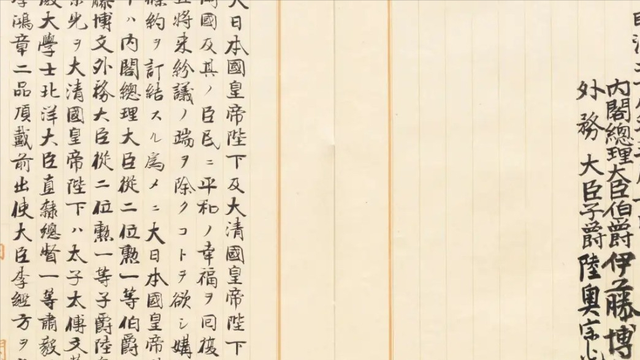 内閣總理大臣伯爵伊藤博
外務大臣子爵陸奥宗
大日本國皇帝陛下及大清國皇帝陛下
兩國及其ノ臣民ニ平和ノ幸福ヲ回復
且將来紛議ノ端ヲ除クコトヲ欲シ媾
條約ヲ訂結スル為メニ大日本國皇
下ハ内閣總理大臣從二位勲一等伯爵
藤博文外務大臣從二位勲一等子爵陸
宗光ヲ大清國皇帝陛下ハ太子太傅文
殿大學士北洋大臣直隷總督一等肅毅
李鴻章二品頂戴前出使大臣李經方ヲ